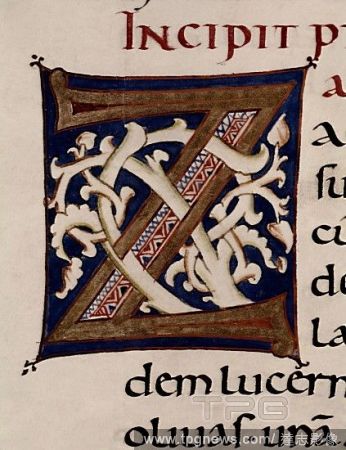 INCIPIT P
a
Z
a
ſu
cū
de
la
dem lucern
oliuaſ upā.
TPG
www.tpgnews.com/ 達志影像